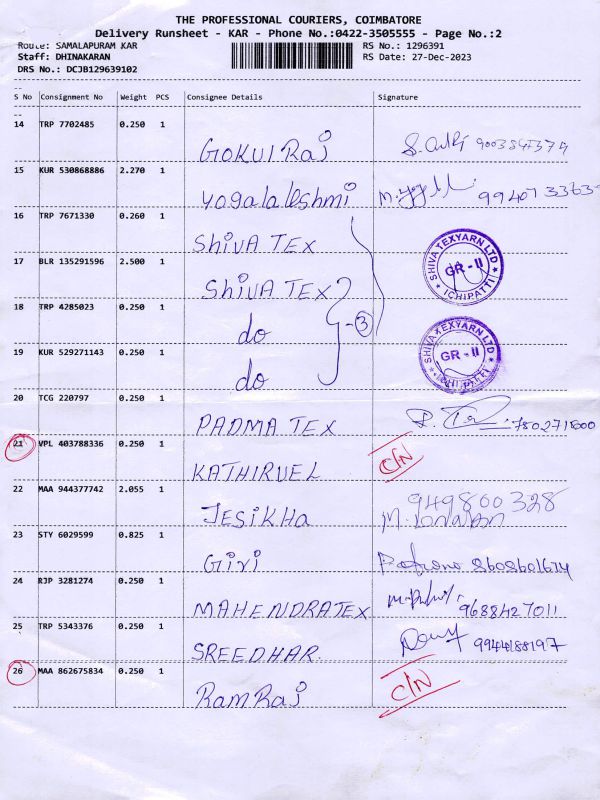 THE PROFESSIONAL COURIERS, COIMBATORE
Delivery Runsheet - KAR - Phone No.:0422-3505555 - Page No.:2
Route: SAMALAPURAM KAR RS No.: 1296391
Staff: DHINAKARAN RS Date: 27-Dec-2023
DRS No.: DCJB129639102
--
S No Consignment No Weight PCS Consignee Details Signature
--
14 TRP 7702485 0.250 1
GOKUlRaj
15 KUR 530868886 2.270 1
yogalaleshmi
16 TRP 7671330 0.260 1
ShivA TEX
17 BLR 135291596 2.500 1
ShivA TEX
SHIVA TEXYARN LTD
GR - II
ICHIPATTI
18 TRP 4285023 0.250 1
do -3
19 KUR 529271143 0.250 1
do
SHIVA TEXYARN LTD
GR - II
ICHIPATTI
20 TCG 220797 0.250 1
PADMA TEX
21 VPL 403788336 0.250 1
KATHIRVEL C/N
22 MAA 944377742 2.055 1
JESIKHa 949800328
23 STY 6029599 0.825 1
Giri 8608601674
24 RJP 3281274 0.250 1
MAHENDRATEX 9688427011
25 TRP 5343376 0.250 1
SREEDHAR. 9944188197
26 MAA 862675834 0.250 1
RamRaj C/N